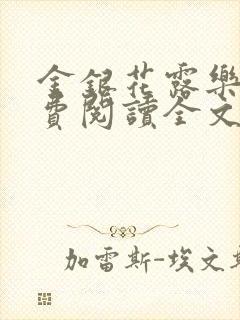 金銀花露樂
費閱讀全文
加雷斯-埃文斯